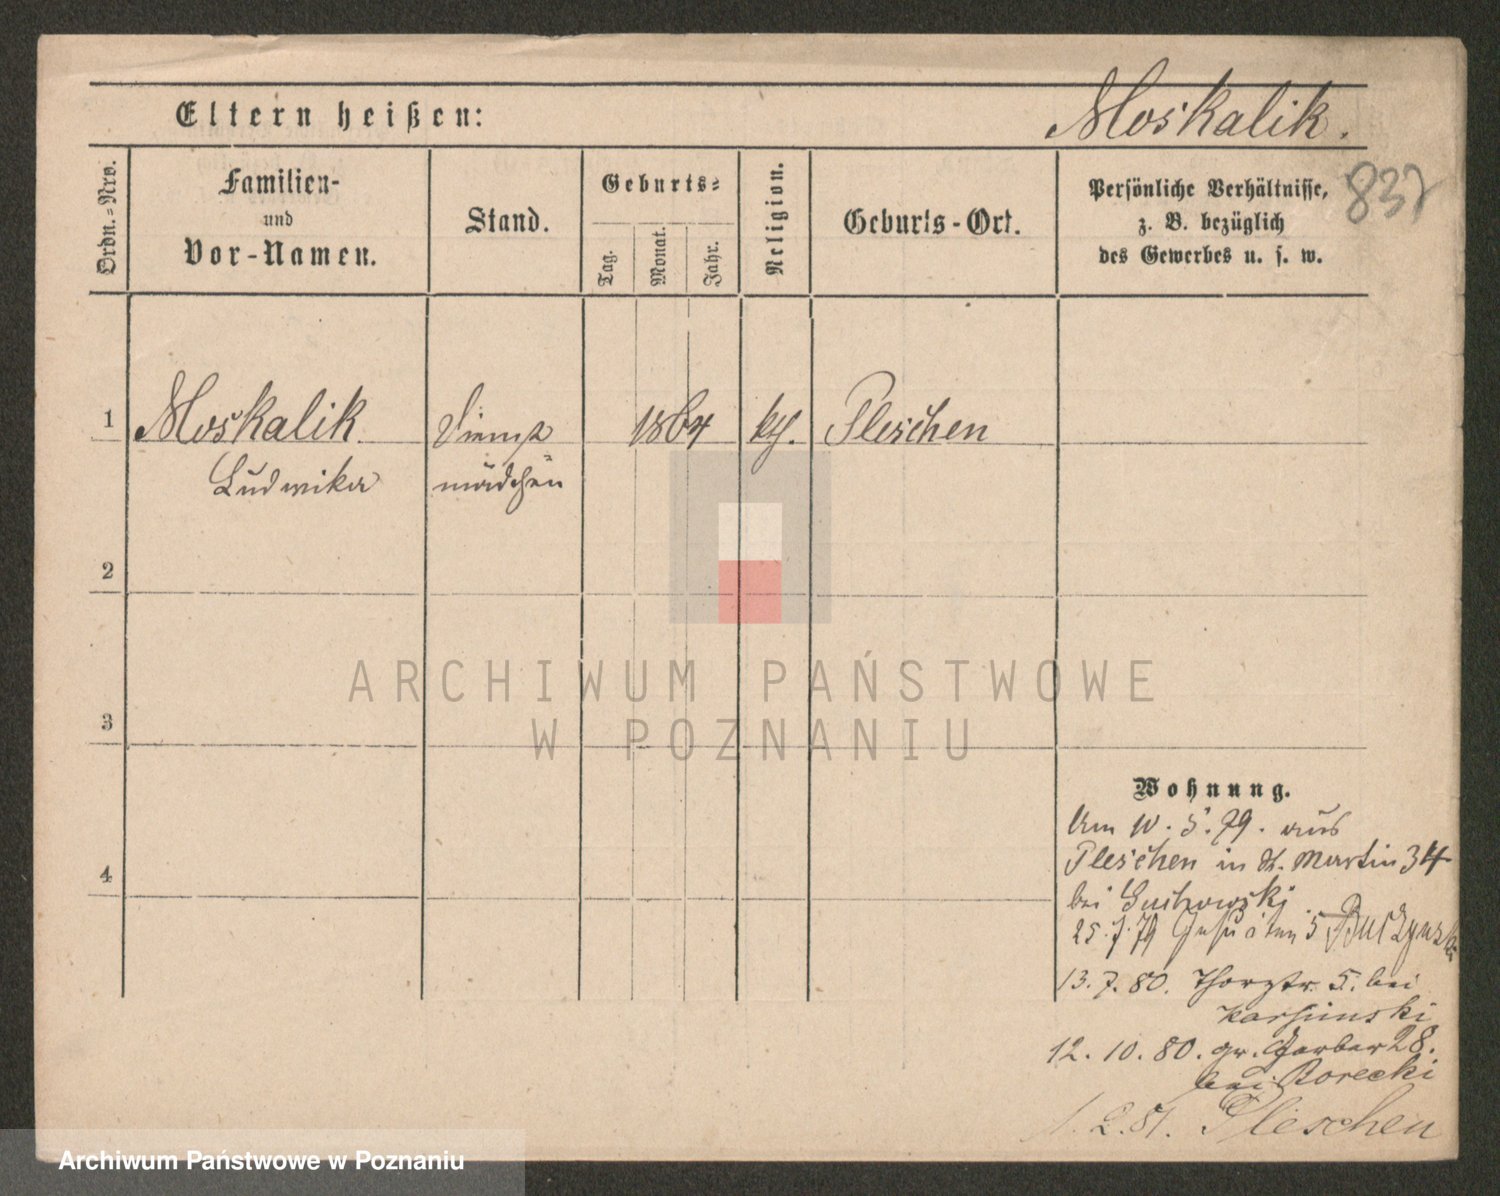 Eltern heißen:
Moskalik.
837
Ordn.=Nro.
Familien-
und
Vor-Namen.
Stand.
Geburts=
Tag.
Monat.
Jahr.
Religion.
Geburts-Ort.
Persönliche Verhältnisse,
z. B. bezüglich
des Gewerbes u. s. w.
1 Moskalik Dienst 1864 kth. Pleschen
Ludwika mädchen
2
3
4
ARCHIWUM PAŃSTWOWE
W POZNANIU
Wohnung.
Am 10. 5. 79. aus
Pleschen in St. Martin 34
bei
25. 7. 79 Jesuiten 5
13. 7. 80. Thorstr. 5. bei
12. 10. 80. gr. Gerber 28.
bei Borecki
1. 2. 81. Pleschen
Archiwum Państwowe w Poznaniu